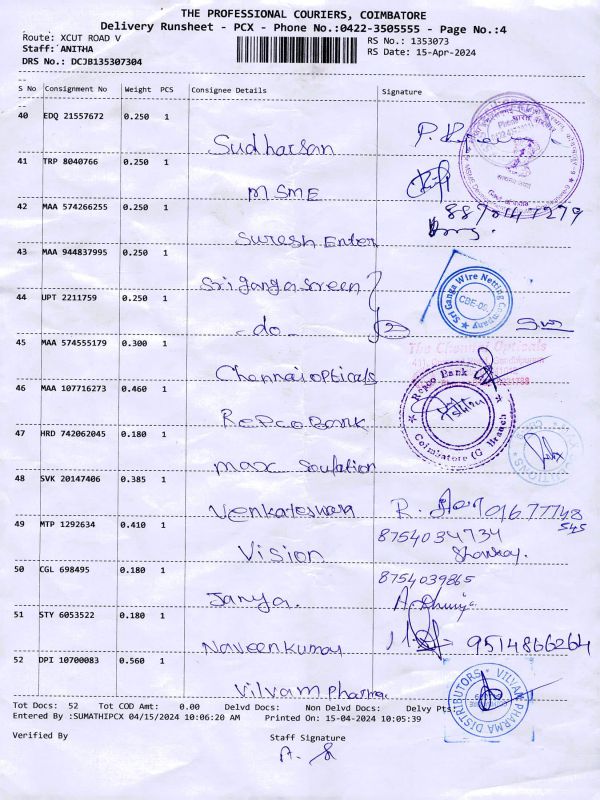 THE PROFESSIONAL COURIERS, COIMBATORE
Delivery Runsheet - PCX - Phone No.:0422-3505555 - Page No.:4
Route: XCUT ROAD V
Staff: ANITHA
DRS No.: DCJB135307304
RS No.: 1353073
RS Date: 15-Apr-2024
S No Consignment No Weight PCS Consignee Details Signature
40 EDQ 21557672 0.250 1
Sudharsan
41 TRP 8040766 0.250 1
MSME
42 MAA 574266255 0.250 1
Suresh Enter
43 MAA 944837995 0.250 1
Sri ganga screen
Sri Ganga Wire Netting Company
CBE-06.
44 UPT 2211759 0.250 1
-do-
45 MAA 574555179 0.300 1
The Chennai Opticals
Chennai opticals
46 MAA 107716273 0.460 1
Repco Bank
Coimbatore (G) Branch
Repco Bank
47 HRD 742062045 0.180 1
max Soulation
48 SVK 20147406 0.385 1
Venkateswara
49 MTP 1292634 0.410 1
8754034734
Vision
50 CGL 698495 0.180 1
8754039865
Janya.
51 STY 6053522 0.180 1
Naveenkumar 9514866264
52 DPI 10700083 0.560 1
Vilvam Pharma
VILVAM PHARMA DISTRIBUTORS
Tot Docs: 52 Tot COD Amt: 0.00 Delvd Docs: Non Delvd Docs: Delvy Pts:
Entered By :SUMATHIPCX 04/15/2024 10:06:20 AM Printed On: 15-04-2024 10:05:39
Verified By Staff Signature